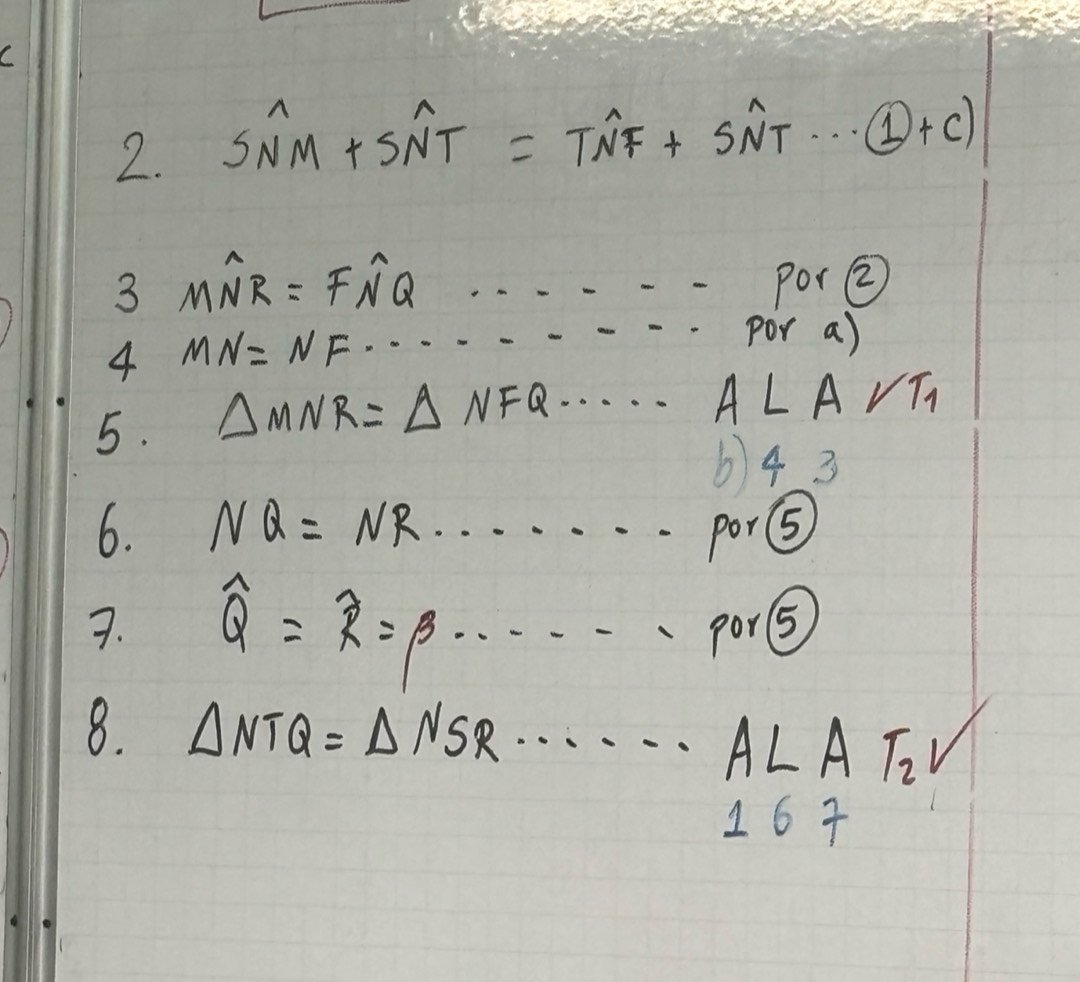 c
2. SN̂M + SN̂T = TN̂F + SN̂T ... ①+c)
3 MN̂R = FN̂Q ...... por ②
4 MN = NF......... por a)
5. △MNR = △ NFQ..... A L A ✓T₁
b) 4 3
6. NQ = NR....... por ⑤
7. Q̂ = R̂ = β...... por ⑤
8. △NTQ = △ NSR ...... A L A T₂ ✓
1 6 7